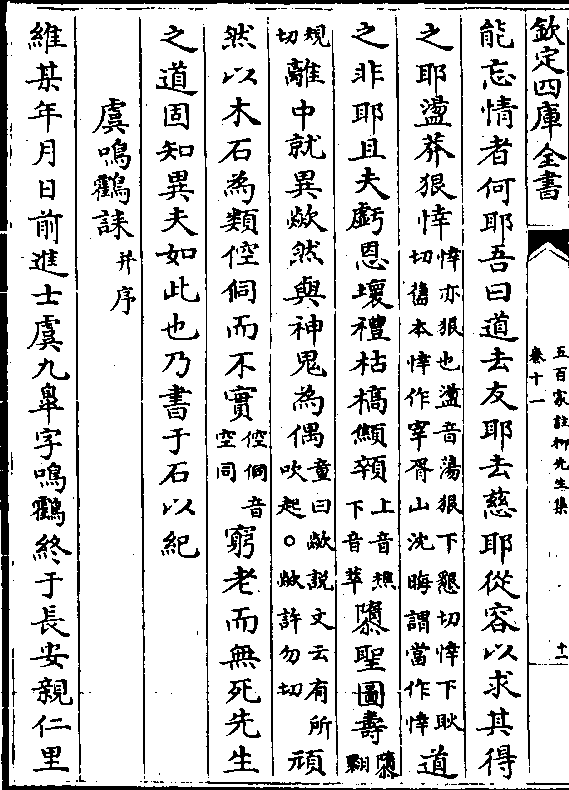 欽定四庫全書
五百家註柳先生集
卷十一
十一
能忘情者何耶吾曰道去友耶去慈耶從容以求其得
之耶盪莽狠悻悻亦狠也盪音蕩狠下懇切悻下耿
切舊本悻作宰胥山沈晦謂當作悻道
之非耶且夫虧恩壞禮枯槁顦顇上音憔
下音萃隳聖圖壽隳
翾
規
切離中就異歘然與神鬼為偶童曰歘說文云有所
吹起。歘許勿切頑
然以木石為類倥侗而不實倥侗音
空同窮老而無死先生
之道固知異夫如此也乃書于石以紀
虞鳴鶴誄并序
維某年月日前進士虞九皐字鳴鶴終于長安親仁里